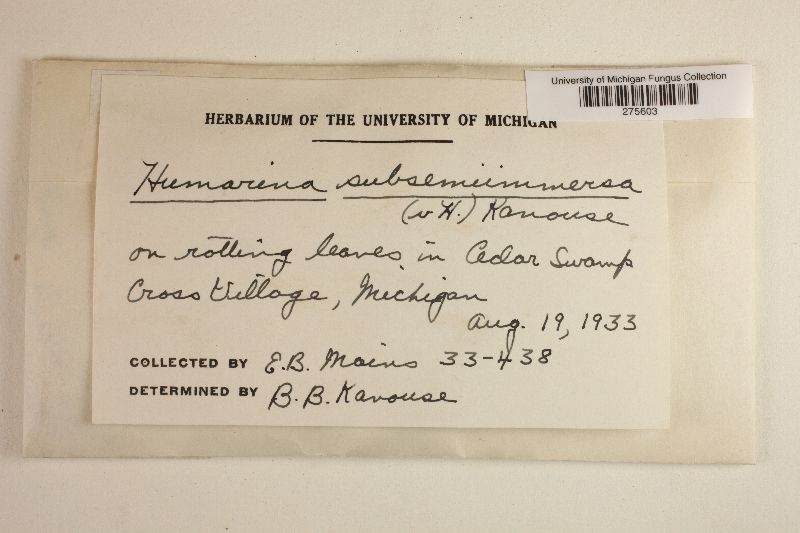 University of Michigan Fungus Collection
275603
HERBARIUM OF THE UNIVERSITY OF MICHIGAN
Humarina subsemiimmersa
(v H.) Kanouse
on rotting leaves in Cedar Swamp
Cross Village, Michigan
Aug. 19, 1933
COLLECTED BY E.B. Mains 33-438
DETERMINED BY B.B. Kanouse